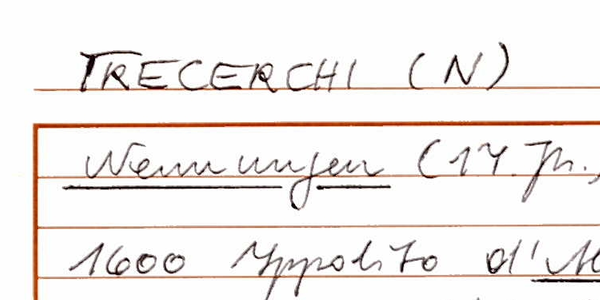 TRECERCHI (N)
Nennungen (17. Jh.)
1600 Yppolito d'